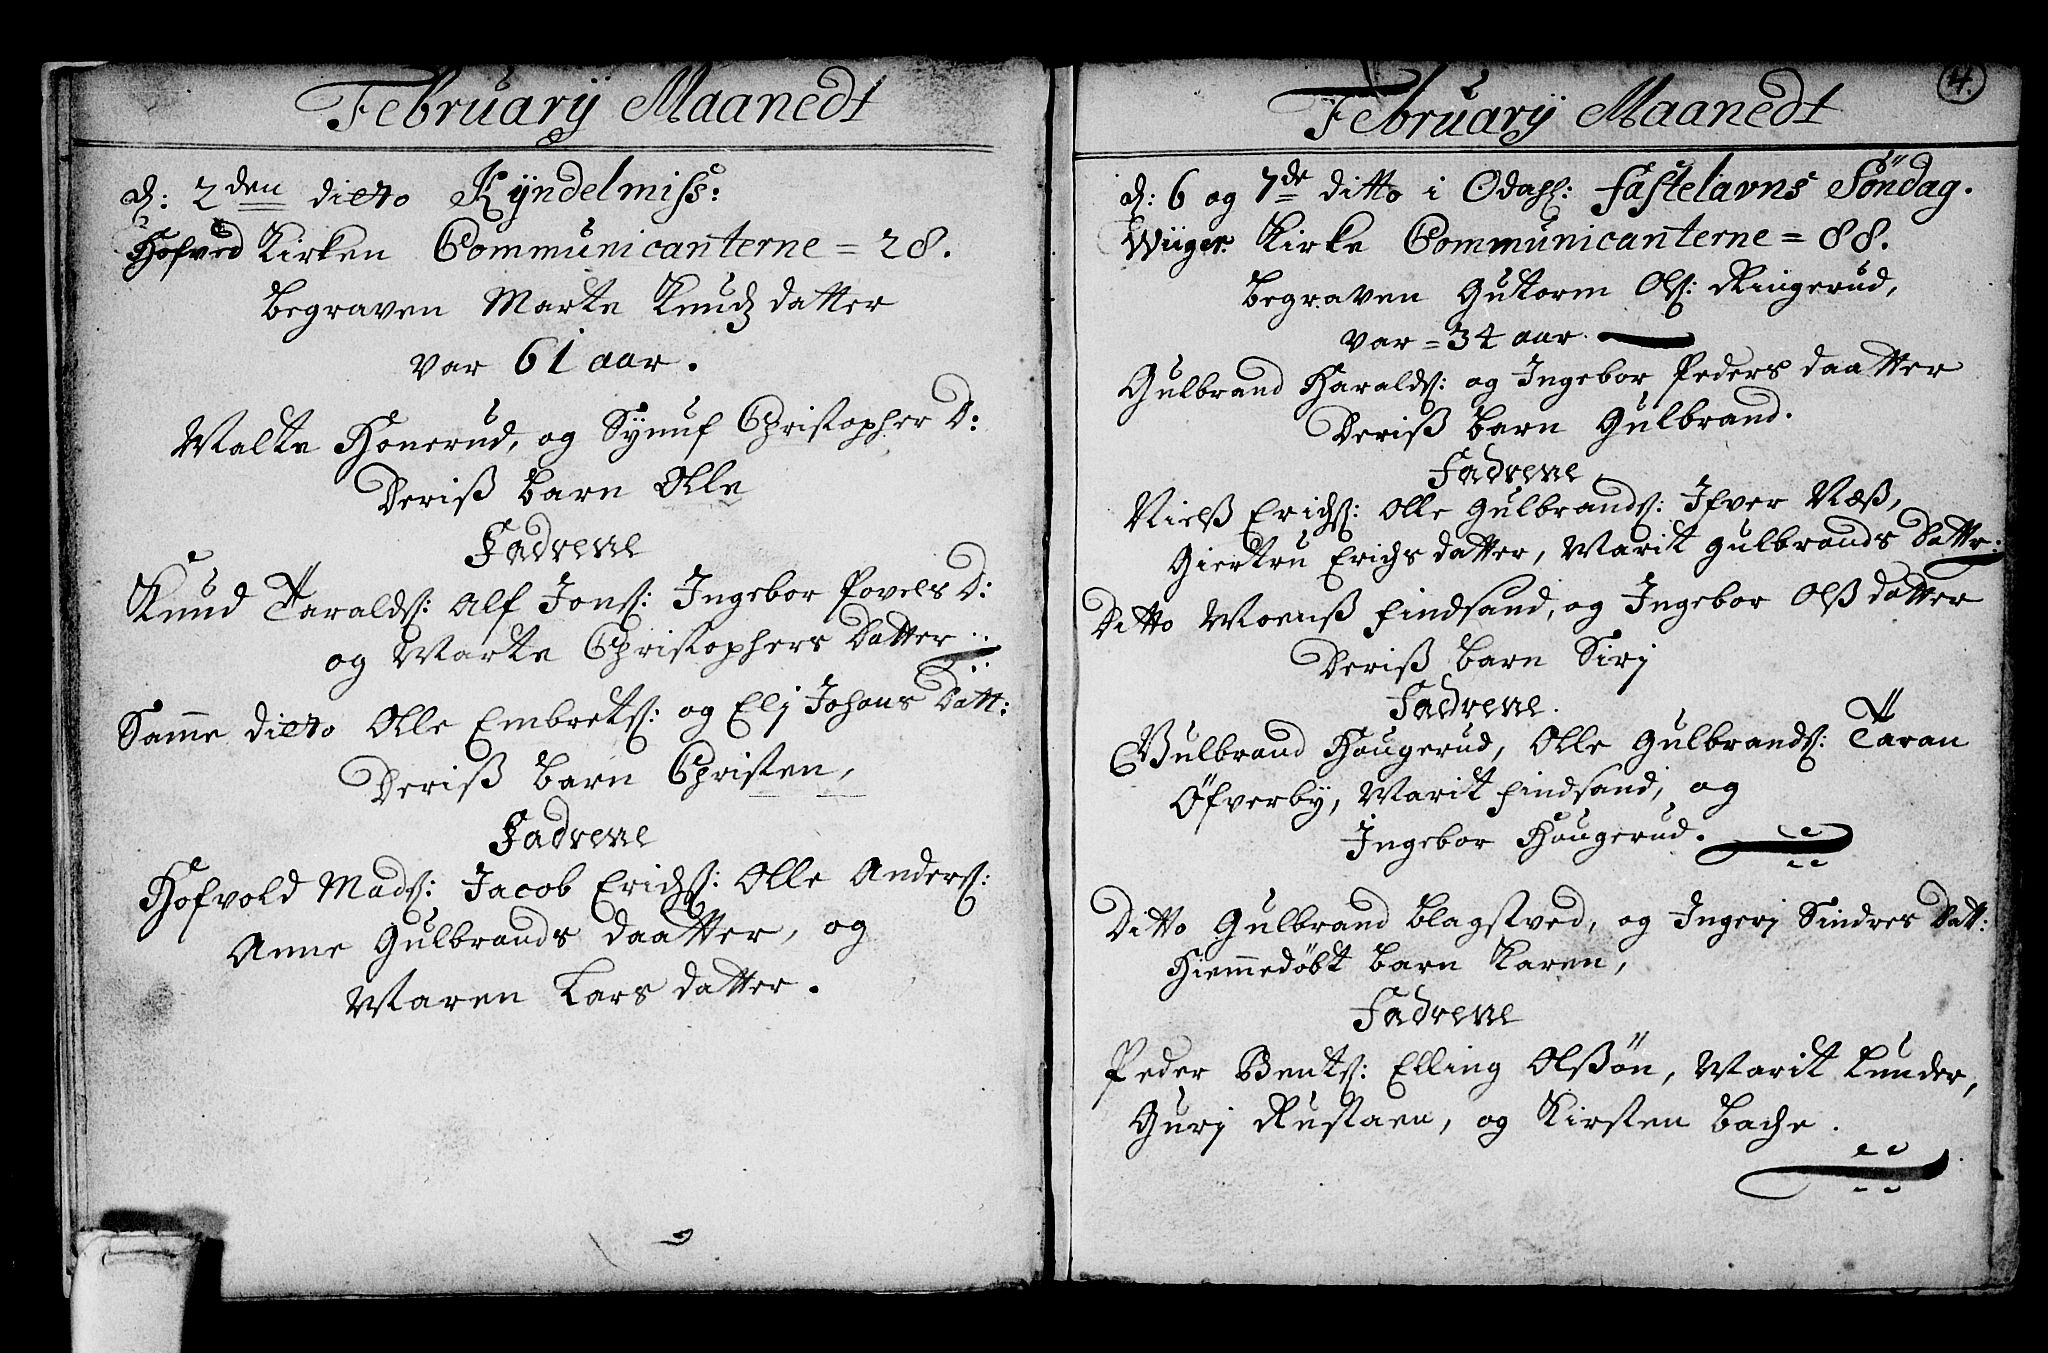 Februarÿ Maanedt
d: 2den dicto Kÿndelmiss:
Hofved Kirken Communicanterne = 28.
begraven Marte Knudz datter
var 61 aar.
Malte Honerud, og Synuf Christopher D:
Deriß barn Olle
Fadrene
Knud Taralds: Alf Jons: Ingebor Povels D:
og Marte Christophers Datter
Samme dicto Olle Embrets: og Elj Johans Datt:
Deriß barn Christen,
Fadrene
Hofvold Mads: Jacob Erichs: Olle Anders:
Anne Gulbrands daatter, og
Maren Lars datter.
4.
Februarÿ Maanedt
d: 6 og 7de ditto i Odahl: fastelavns Söndag.
Wiiger Kirke Communicanterne = 88.
begraven Guttorm Ols: Ringerud,
var = 34 aar.
Gulbrand Haralds: og Ingebor Peders daatter
Deriß barn Gulbrand.
Fadrene
Nielß Erichs: Olle Gulbrands: Ifver Næß,
Giertru Erichs datter, Marit gulbrands Datter:
Ditto Moenß findsand, og Ingebor Olß datter
Deriß barn Sirj
Fadrene.
Gulbrand Haugerud, Olle Gulbrands: Taran
Öfverby, Marit findsand, og
Ingebor Haugerud.
Ditto Gulbrand blagstved, og Ingerj Sindres Datt:
Hiemmedøbt barn Karen,
Fadrene
Peder Bents: Elling Olßön, Marit Lunder,
Gurj Rustaen, og Kirsten bache.